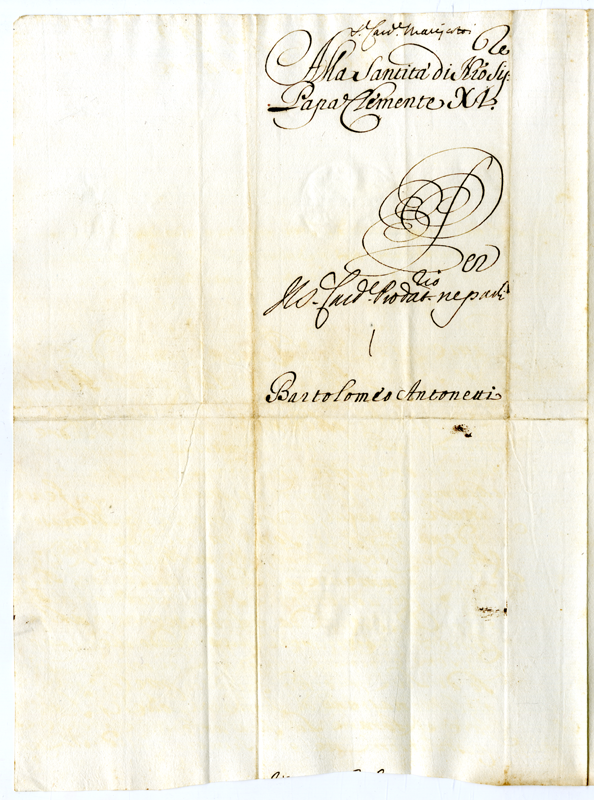 S. Card. Marescotti
Alla Santità di N͞ro Sig.re
Papa Clemente XI.
Per
Card.e Prodatario ne parli
Bartolomeo Antonetti